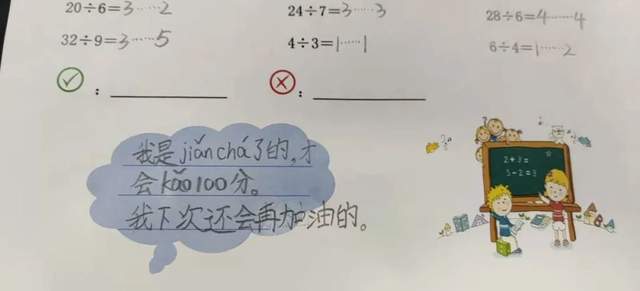 20÷6=3……2 24÷7=3……3 28÷6=4……4
32÷9=3……5 4÷3=1……1 6÷4=1……2
✓: ✗:
我是jiǎn chá了的,才
会kǎo100分。
我下次还会再加油的。
2+3=
5-2=3